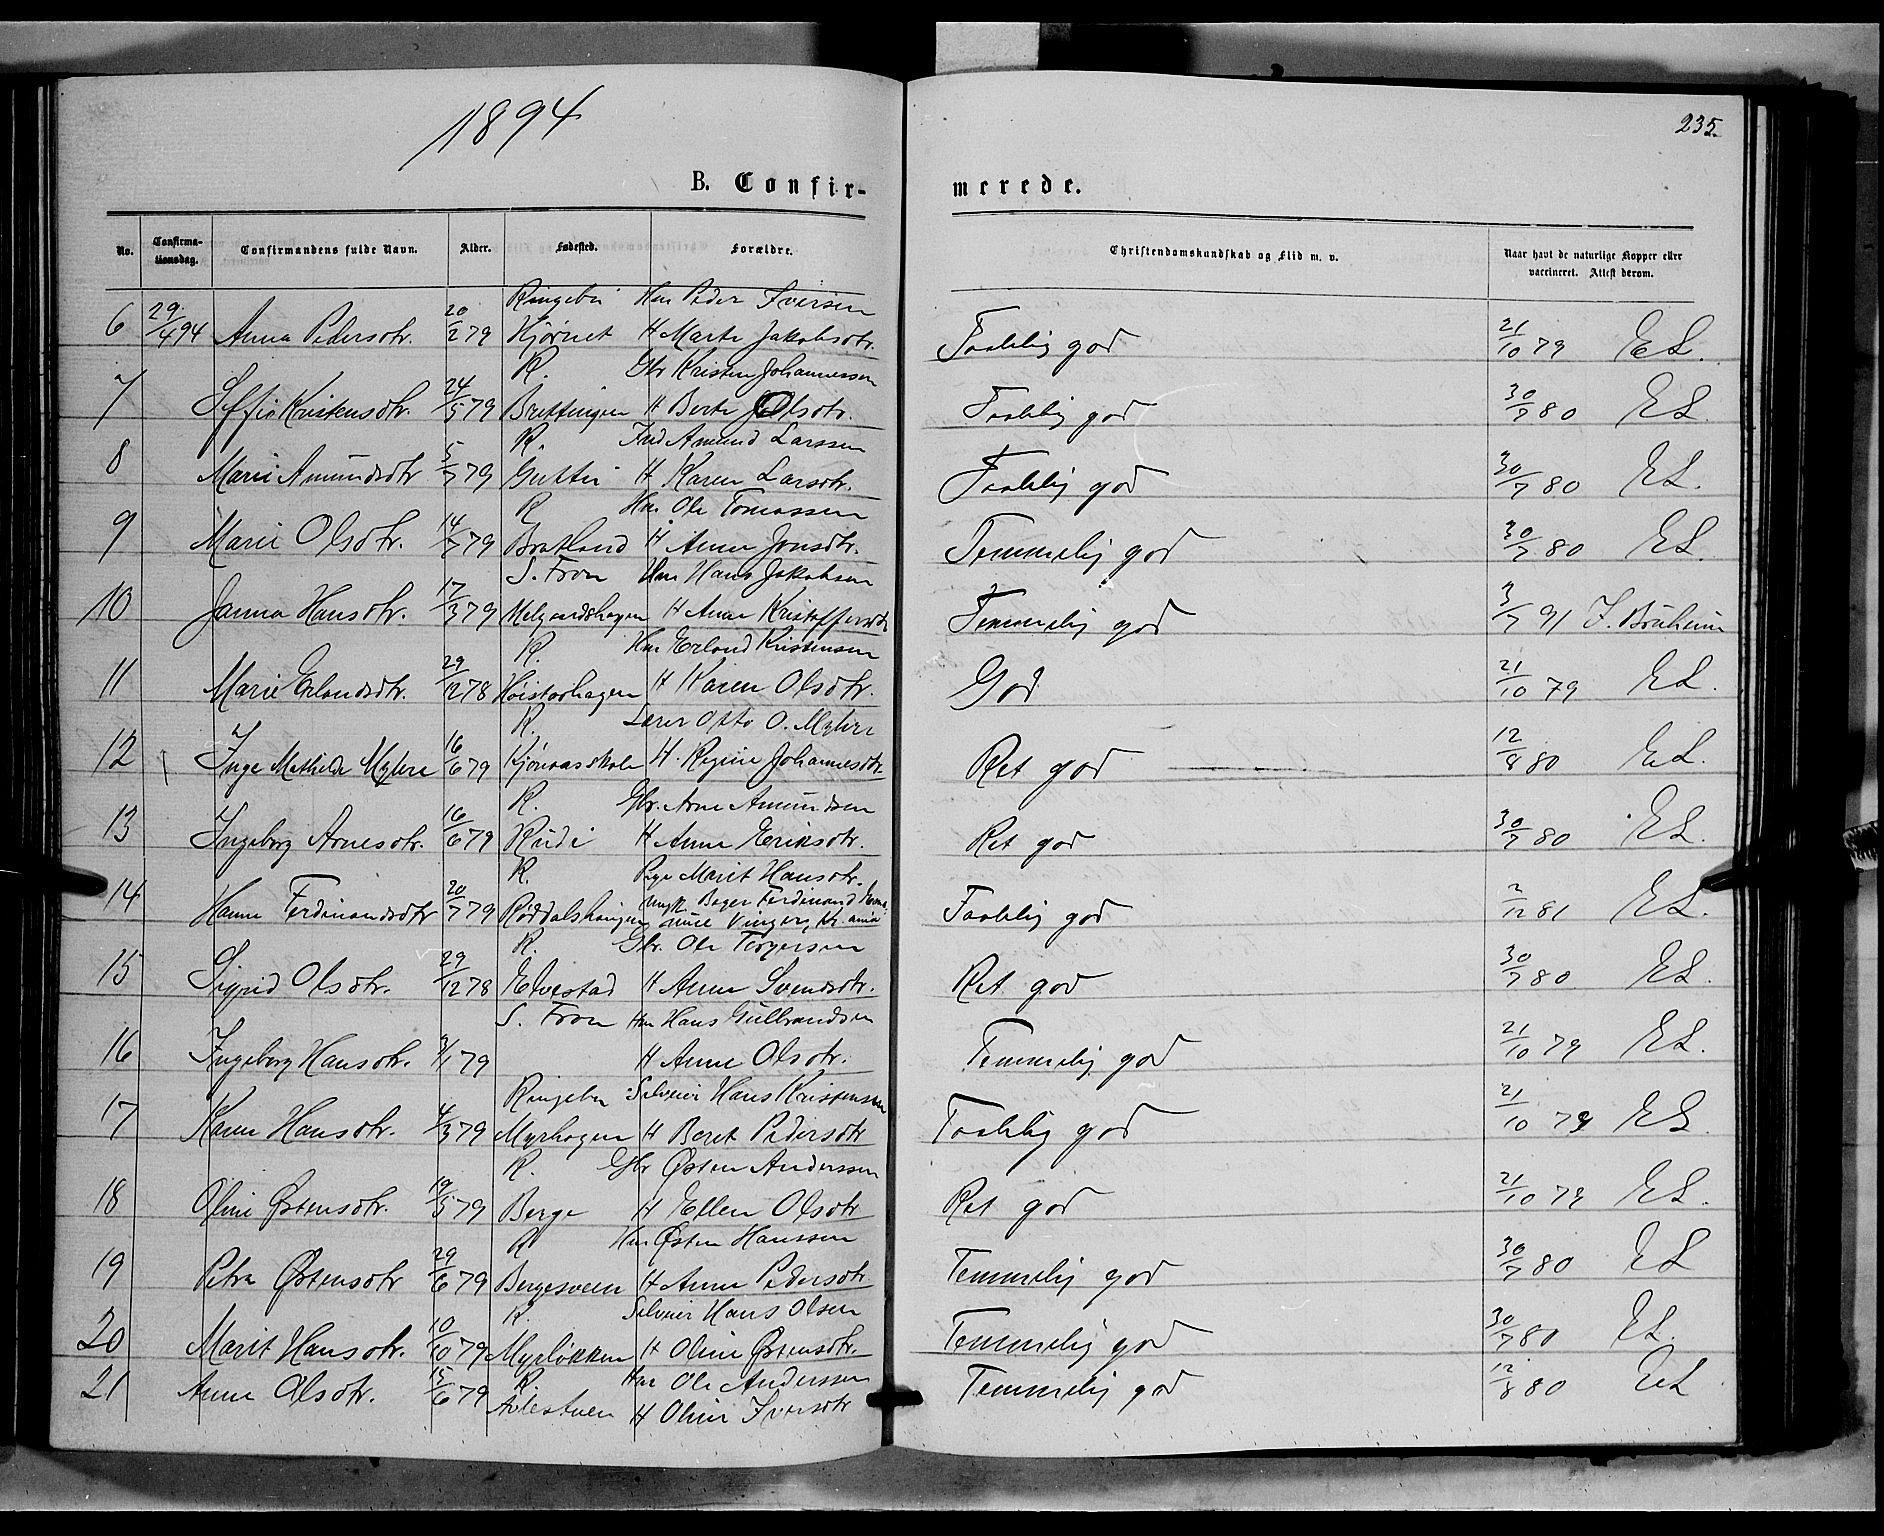 1894
235.
B. Confir-
merede.
No. Confirma-tionsdag. Confirmandens fulde Navn. Alder. Fødested. Forældre. Christendomskundskab og Flid m. v. Naar havt de naturlige Kopper eller vaccineret. Attest derom.
Ringebu Hm Peder Iversen
6 29/4 94 Anna Pedersdtr. 20/2 79 Hjørnet H Marte Jakobsdtr. Taalelig god 21/10 79 EL.
R. Gbr Kristen Johannessen
7 Seffie Kristensdtr. 24/5 79 Brettingen H Berte Olsdtr. Taalelig god 30/7 80 EL.
R. Ind Amund Larssen
8 Marie Amundsdtr 5/7 79 H Karen Larsdtr. Taalelig god 30/7 80 EL.
R Hm Ole Tomassen
9 Marie Olsdtr. 14/7 79 Bratland H Anne Jonsdtr. Temmelig god 30/7 80 EL.
S. Fron Hm Hans Jakobsen
10 Janna Hansdtr. 17/3 79 Melgaardshagen H Anne Kristoffersdtr Temmelig god 3/7 91 I. Bruheim
R. Hm Erland Kristensen
11 Marie Erlandsdtr. 29/12 78 H Karen Olsdtr. God 21/10 79 EL.
R. Lærer Otto O. Myhre
12 Inge Mathilde Myhre 16/6 79 Kjønaasskole H. Regine Johannesdtr. Ret god 12/8 80 EL.
R. Gbr. Arne Amundsen
13 Ingeborg Arnesdtr. 16/6 79 Rudi H Anne Eriksdtr. Ret god 30/7 80 EL.
R. Pige Marit Hansdtr.
14 Hanne Ferdinandsdtr 20/7 79 Ungk. Bager Ferdinand Taalelig god 2/12 81 EL.
R. Gbr. Ole Torgersen
15 Sigrid Olsdtr. 29/12 78 Elvestad H Anne Svendsdtr. Ret god 30/7 80 EL.
S. Fron Hm Hans Gulbrandsen
16 Ingeborg Hansdtr. 79 H Anne Olsdtr. Temmelig god 21/10 79 EL.
Ringebu Selveier Hans Kristensen
17 Karen Hansdtr. 4/3 79 Myrhagen H Beret Pedersdtr Taalelig god 21/10 79 EL.
R. Gbr Østen Anderssen
18 Oline Østensdtr. 19/5 79 Berge H Ellen Olsdtr Ret god 21/10 79 EL.
R Hm Østen Hanssen
19 Petra Østensdtr 29/6 79 Bergesveen H Anne Pedersdtr. Temmelig god 30/7 80 EL
R. Selveier Hans Olsen
20 Marit Hansdtr. 10/10 79 Myrløkken H Oline Østensdtr. Temmelig god 30/7 80 EL.
R Hm Ole Anderssen
21 Anne Olsdtr. 15/6 79 H Oline Iversdtr Temmelig god 12/8 80 EL